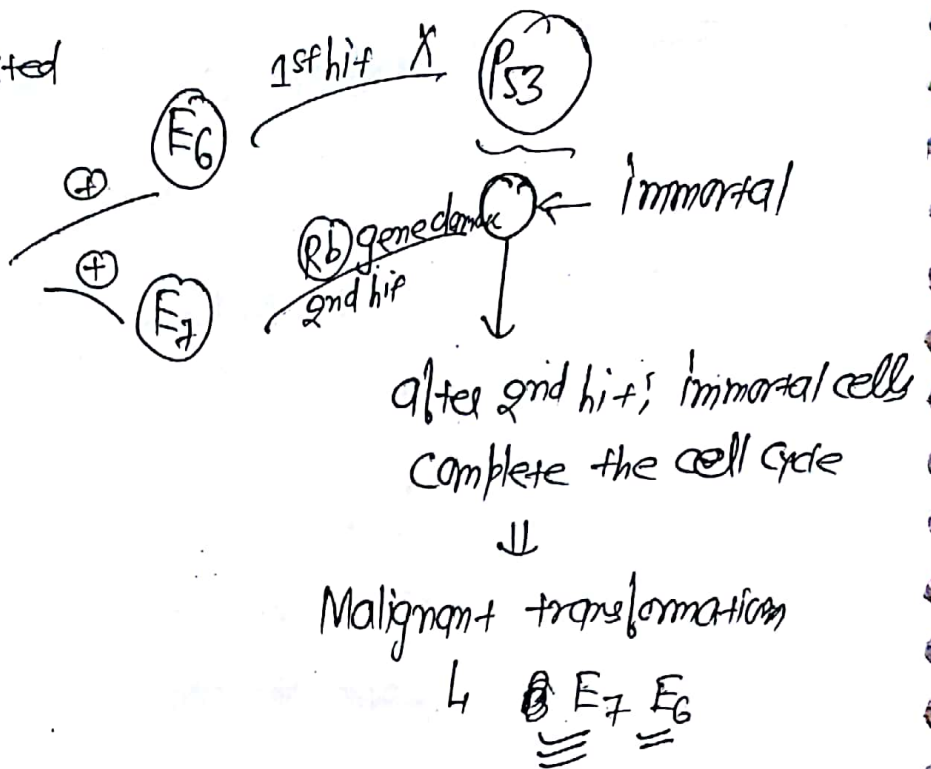 ted
1st hit X P53
E6
+
immortal
+
Rb gene damage
2nd hit
E7
after 2nd hit; immortal cells
Complete the cell cycle
⇓
Malignant transformation
↳ E7 E6